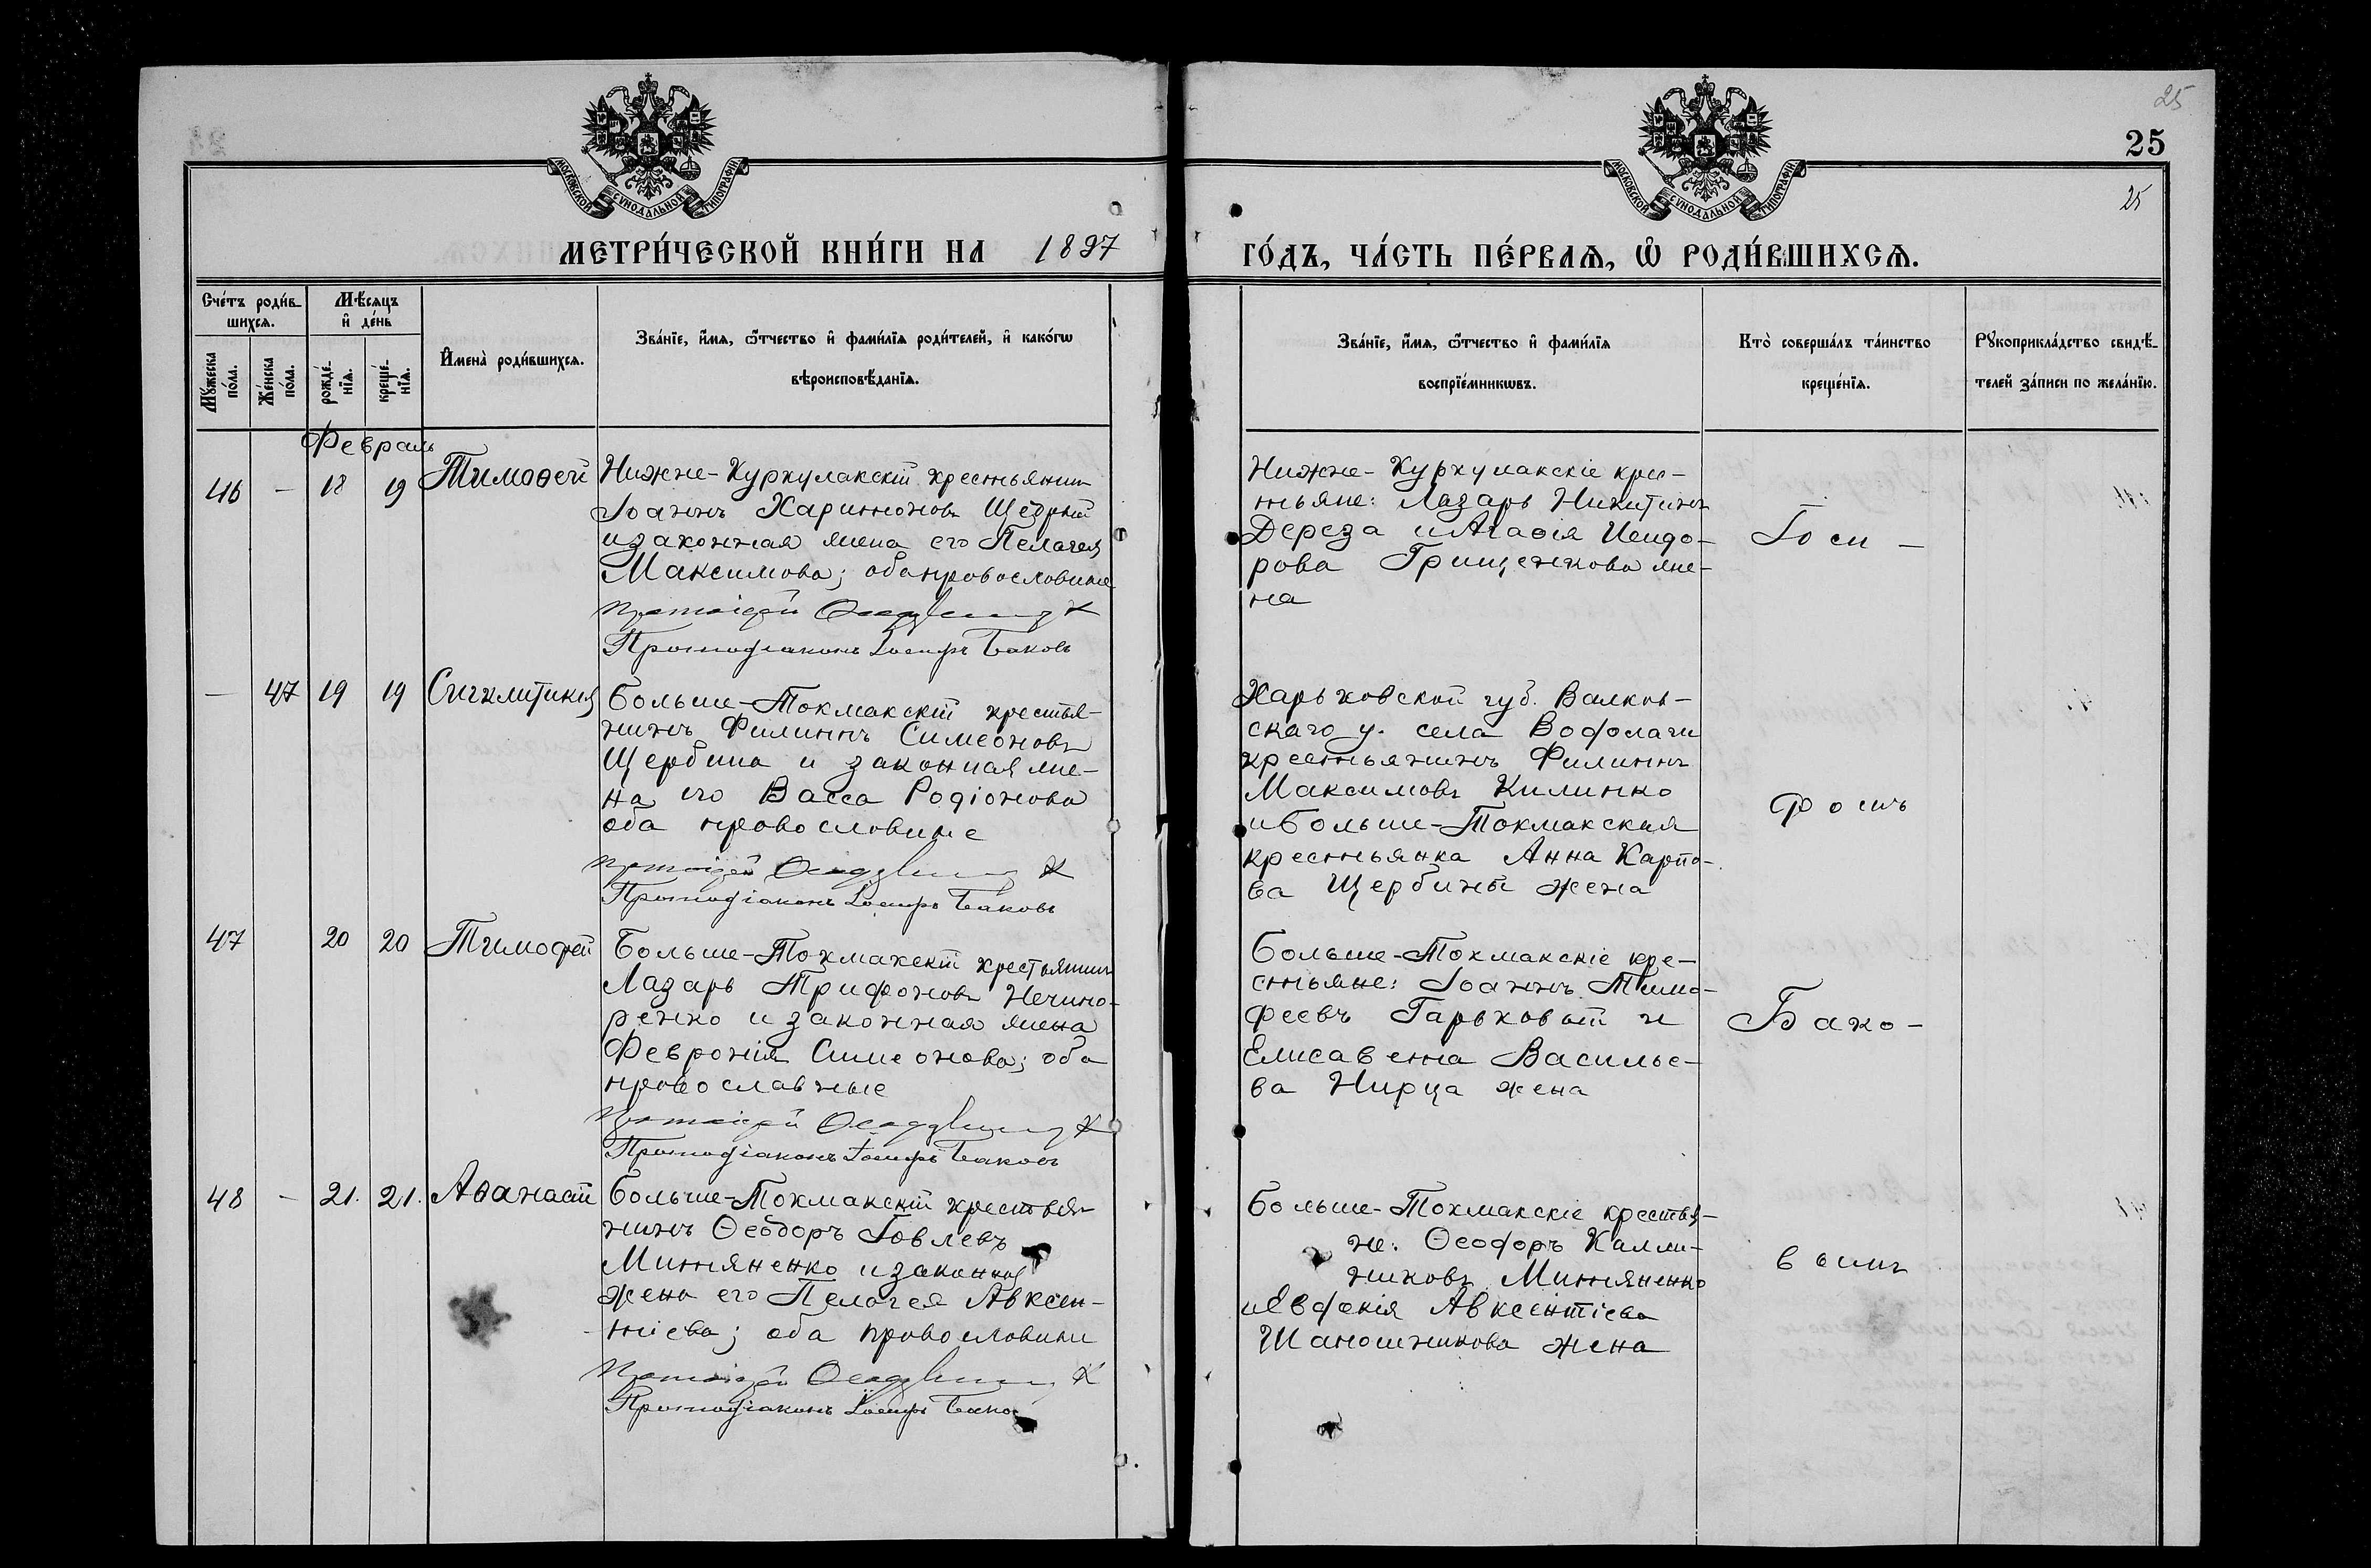 25
25
25
МОСКОВСКОЙ СѴНОДАЛЬНОЙ ТИПОГРАФІИ
МОСКОВСКОЙ СѴНОДАЛЬНОЙ ТИПОГРАФІИ
МЕТРИ́ЧЕСКОЙ КНИ́ГИ НА 1897 ГО́ДЪ, ЧА́СТЬ ПЕ́РВАѦ, Ѡ РОДИ́ВШИХСѦ.
Сче́тъ роди́в-
шихсѧ.
Мꙋ́жеска по́ла.
Же́нска по́ла.
Мѣ́сѧцъ
и҆ де́нь
рожде́-
нїѧ.
креще́-
нїѧ.
И҆мена̀ роди́вшихсѧ.
Зва́нїе, и҆́мѧ, ѻ҆́тчество и҆ фами́лїѧ роди́телей, и҆ како́гѡ
вѣроисповѣ́данїѧ.
Зва́нїе, и҆́мѧ, ѻ҆́тчество и҆ фами́лїѧ
воспрїе́мникѡвъ.
Кто̀ соверша́лъ та́инство
креще́нїѧ.
Рꙋкоприкла́дство свидѣ́-
телей за́писи по жела́нїю.
Февраль
46 - 18 19 Тимоѳей
Нижне-Куркулакскій крестьянинъ
Іоаннъ Харитоновъ Щедрый
и законная жена его Пелагея
Максимова; оба православные
Протоіерей
Протодіаконъ Іосифъ Баковъ
Нижне-Куркулакскіе крес-
тьяне: Лазарь Никитинъ
Дереза и Агаѳія Исидо-
рова Грищенкова же-
на
Іоси-
- 47 19 19 Сигклитикія
Больше-Токмакскій крестья-
нинъ Филиппъ Симеоновъ
Щербина и законная же-
на его Васса Родіонова
оба православные
Протоіерей
Протодіаконъ Іосифъ Баковъ
Харьковской губ. Валков-
скаго у. села Водолаги
крестьянинъ Филиппъ
Максимовъ Килипко
и Больше-Токмакская
крестьянка Анна Карпо-
ва Щербины жена
фомъ
47 20 20 Тимофей
Больше-Токмакскій крестьянинъ
Лазарь Трифоновъ Нечипо-
ренко и законная жена
Февронія Симеонова; оба
православные
Протоіерей
Протодіаконъ Іосифъ Баковъ
Больше-Токмакскіе кре-
стьяне: Іоаннъ Тимо-
феевъ Гарьковый и
Елисавета Василье-
ва Нирца жена
Бако-
48 - 21. 21. Аѳанасій
Больше-Токмакскій крестья-
нинъ Ѳеодоръ Іовлевъ
Митяненко и законная
жена его Пелагея Авксен-
тіева; оба православные
Протоіерей
Протодіаконъ Іосифъ Баков
Больше-Токмакскіе крестья-
не: Ѳеодоръ Калли-
никовъ Митяненко
и Евдокія Авксентіева
Шапошникова жена
вымъ